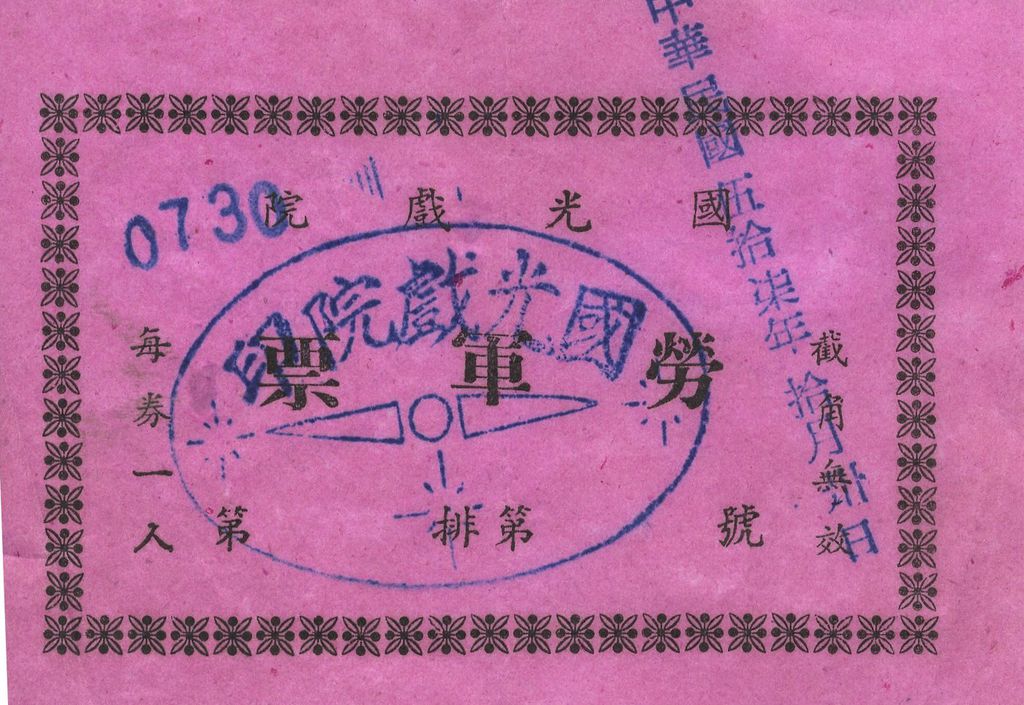 中華民國伍拾柒年拾月卅日
0730
國光戲院
國光戲院印
勞軍票
截角無效
第 排第 號
每券一人